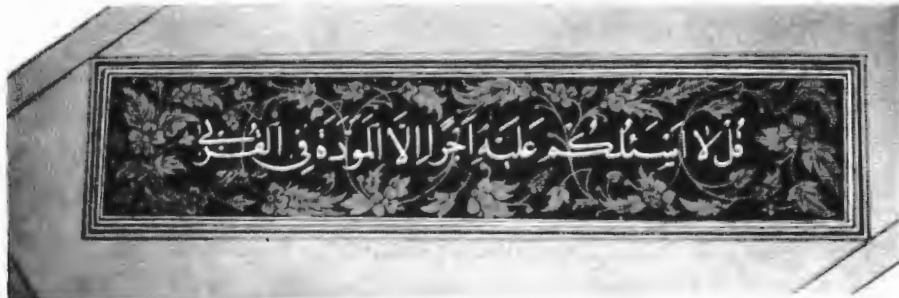 قُلْ لا اَسْئَلُكُمْ عَلَيْهِ اَجْرًا اِلَّا الْمَوَدَّةَ فِى الْقُرْبٰى